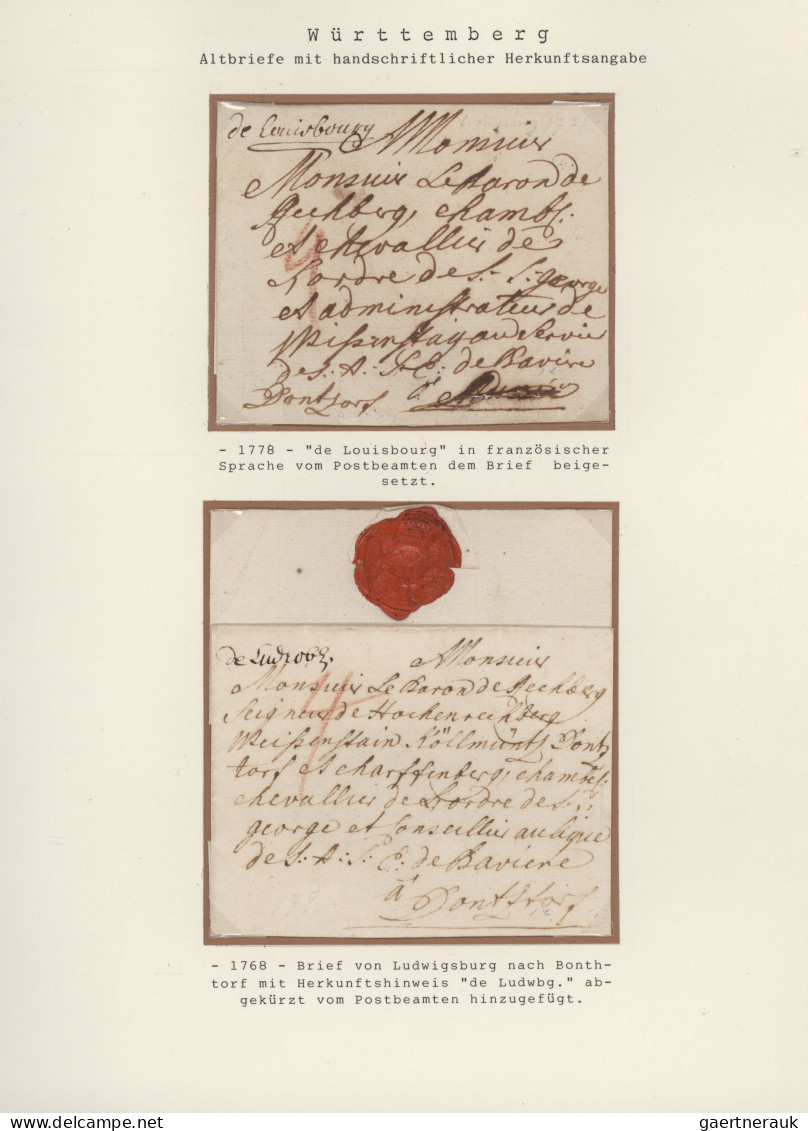 Württemberg
Altbriefe mit handschriftlicher Herkunftsangabe
de Louisbourg
A Monsieur
Monsieur Le Baron de
Rechberg, chamb.
et chevallier de
L'ordre de S. George
et administrateur de
Weissenstaig au Service
de S: A: S: E: de Baviere
Dontzorf. à
- 1778 - "de Louisbourg" in französischer
Sprache vom Postbeamten dem Brief beige-
setzt.
de Ludwbg.
A Monsieur
Monsieur Le Baron de Rechberg
Seigneur de Hochenrechberg
Weissenstain Köllmüntz Dontz
torf et Scharffenberg, chamb:
chevallier de L'ordre de S:
george et Conseillier aulique
de S: A: S: E: de Baviere
à Dontztorf
- 1768 - Brief von Ludwigsburg nach Bonth-
torf mit Herkunftshinweis "de Ludwbg." ab-
gekürzt vom Postbeamten hinzugefügt.
gaertnerauk